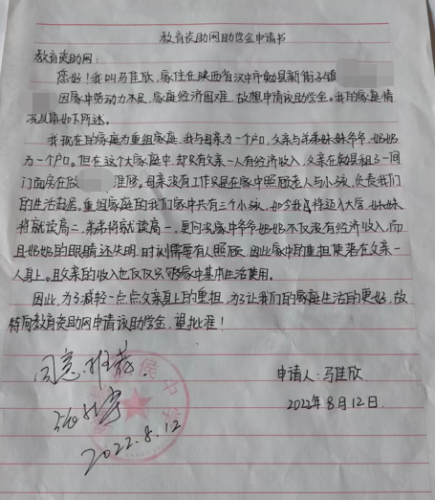 教育资助网助学金申请书
教育资助网:
您好!我叫马佳欣,家住在陕西省汉中市勉县新街子镇
因家中劳动力不足,家庭经济困难,故想申请该助学金。我的家庭情
况具体如下所述。
我现在的家庭为重组家庭,我与母亲为一个户口,父亲与弟弟妹妹爷爷、奶奶
为一个户口。但在这个大家庭中,却只有父亲一人有经济收入,父亲在勉县租了一间
门面房在做 维修。母亲没有工作只是在家中照顾老人与小孩,负责我们
的生活起居。重组家庭的我们家中共有三个小孩,如今我已将迈入大学,妹妹
将就读高二,弟弟将就读高一。更何况家中爷爷奶奶不仅没有经济收入,而
且奶奶的眼睛还失明,时刻需要有人照顾,因此家中的重担便落在父亲一
人身上。且父亲的收入也仅仅只够家中基本生活使用。
因此,为了减轻一点点父亲身上的重担,为了让我们的家庭生活的更好,故
特向教育资助网申请该助学金,望批准!
同意推荐。
申请人:马佳欣
2022年8月12日.
2022.8.12